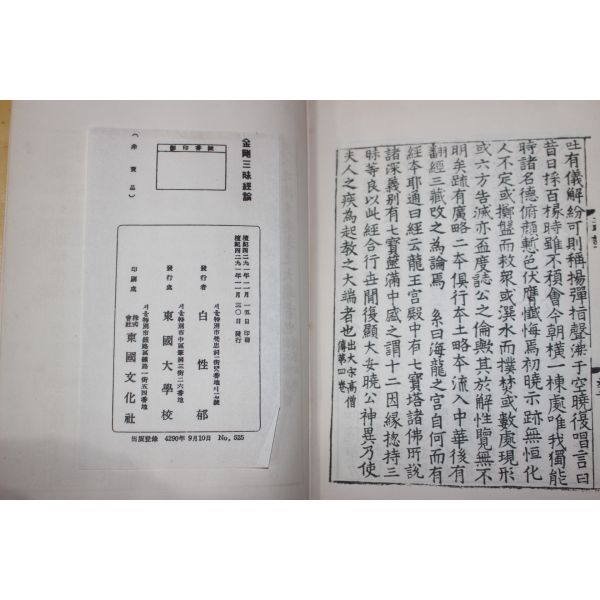 吐有儀解紛可則稱揚彈指聲沸于空曉復唱言曰
昔日採百椽時雖不預會今朝橫一棟處唯我獨能
時諸名德俯顏慙色伏膺懺悔焉初曉示跡無恒化
人不定或擲盤而救衆或潠水而撲焚或數處現形
或六方告滅亦盃度誌公之倫歟其於解性覽無不
明矣疏有廣略二本俱行本土略本流入中華後有
翻經三藏改之爲論焉 系曰海龍之宮自何而有
經本耶通曰經云龍王宮殿中有七寶塔諸佛所說
諸深義別有七寶篋滿中盛之謂十二因緣揔持三
昧等良以此經合行世閒復顯大安曉公神異乃使
夫人之疾爲起教之大端者也 出大宋高僧傳第四卷
金剛三昧經論
影印番號
(非賣品)
檀紀四二九一年一一月一五日 印刷
檀紀四二九一年一一月三〇日 發行
發行者 白性郁
發行處 東國大學校
印刷處 株式會社 東國文化社
出版登錄 4290年 9月10日 No. 525